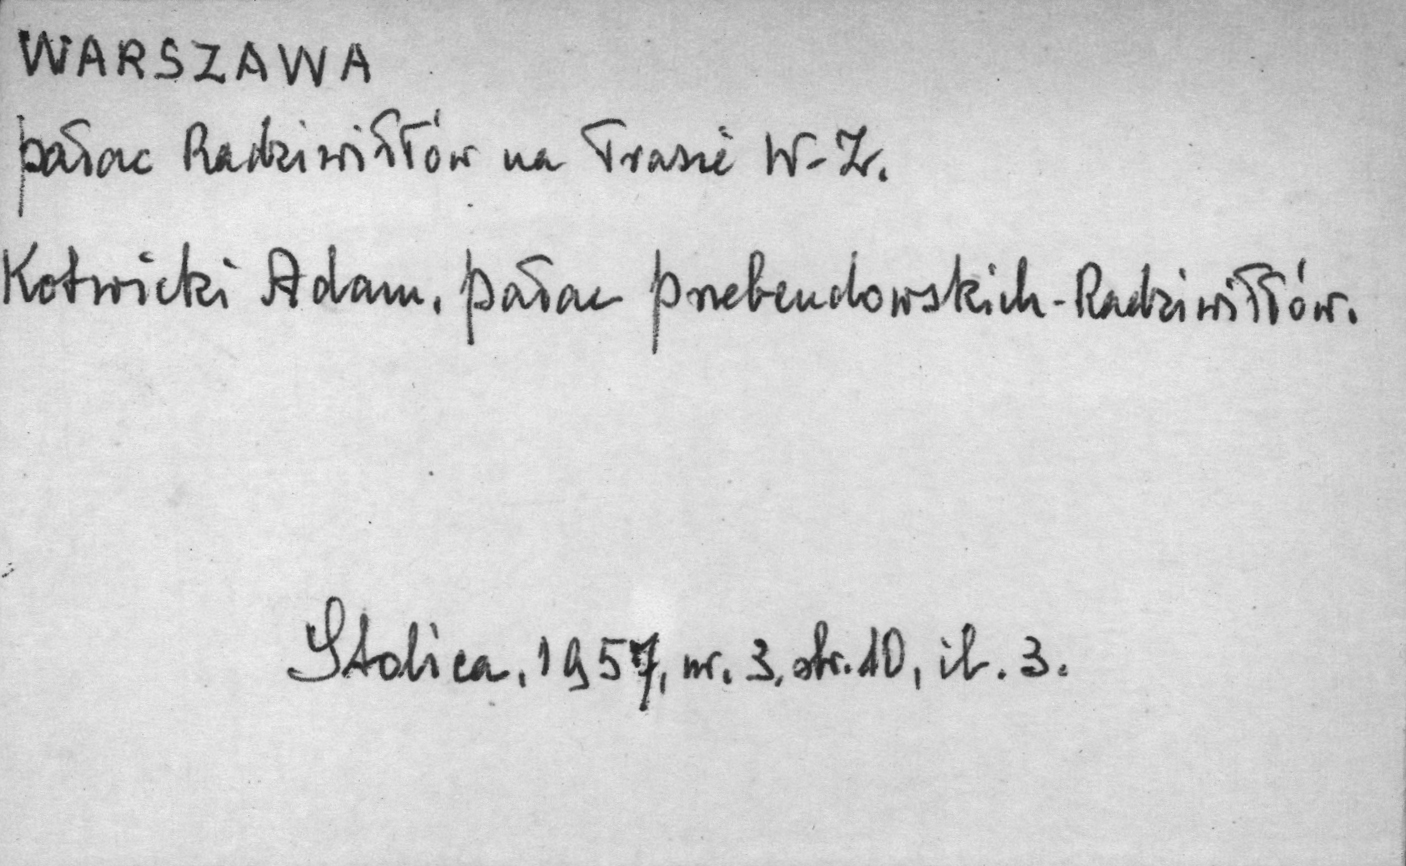 WARSZAWA
pałac Radziwiłłów na Trasie W-Z.
Kotwicki Adam, pałac Przebendowskich-Radziwiłłów.
Stolica, 1957, nr. 3, str. 10, il. 3.